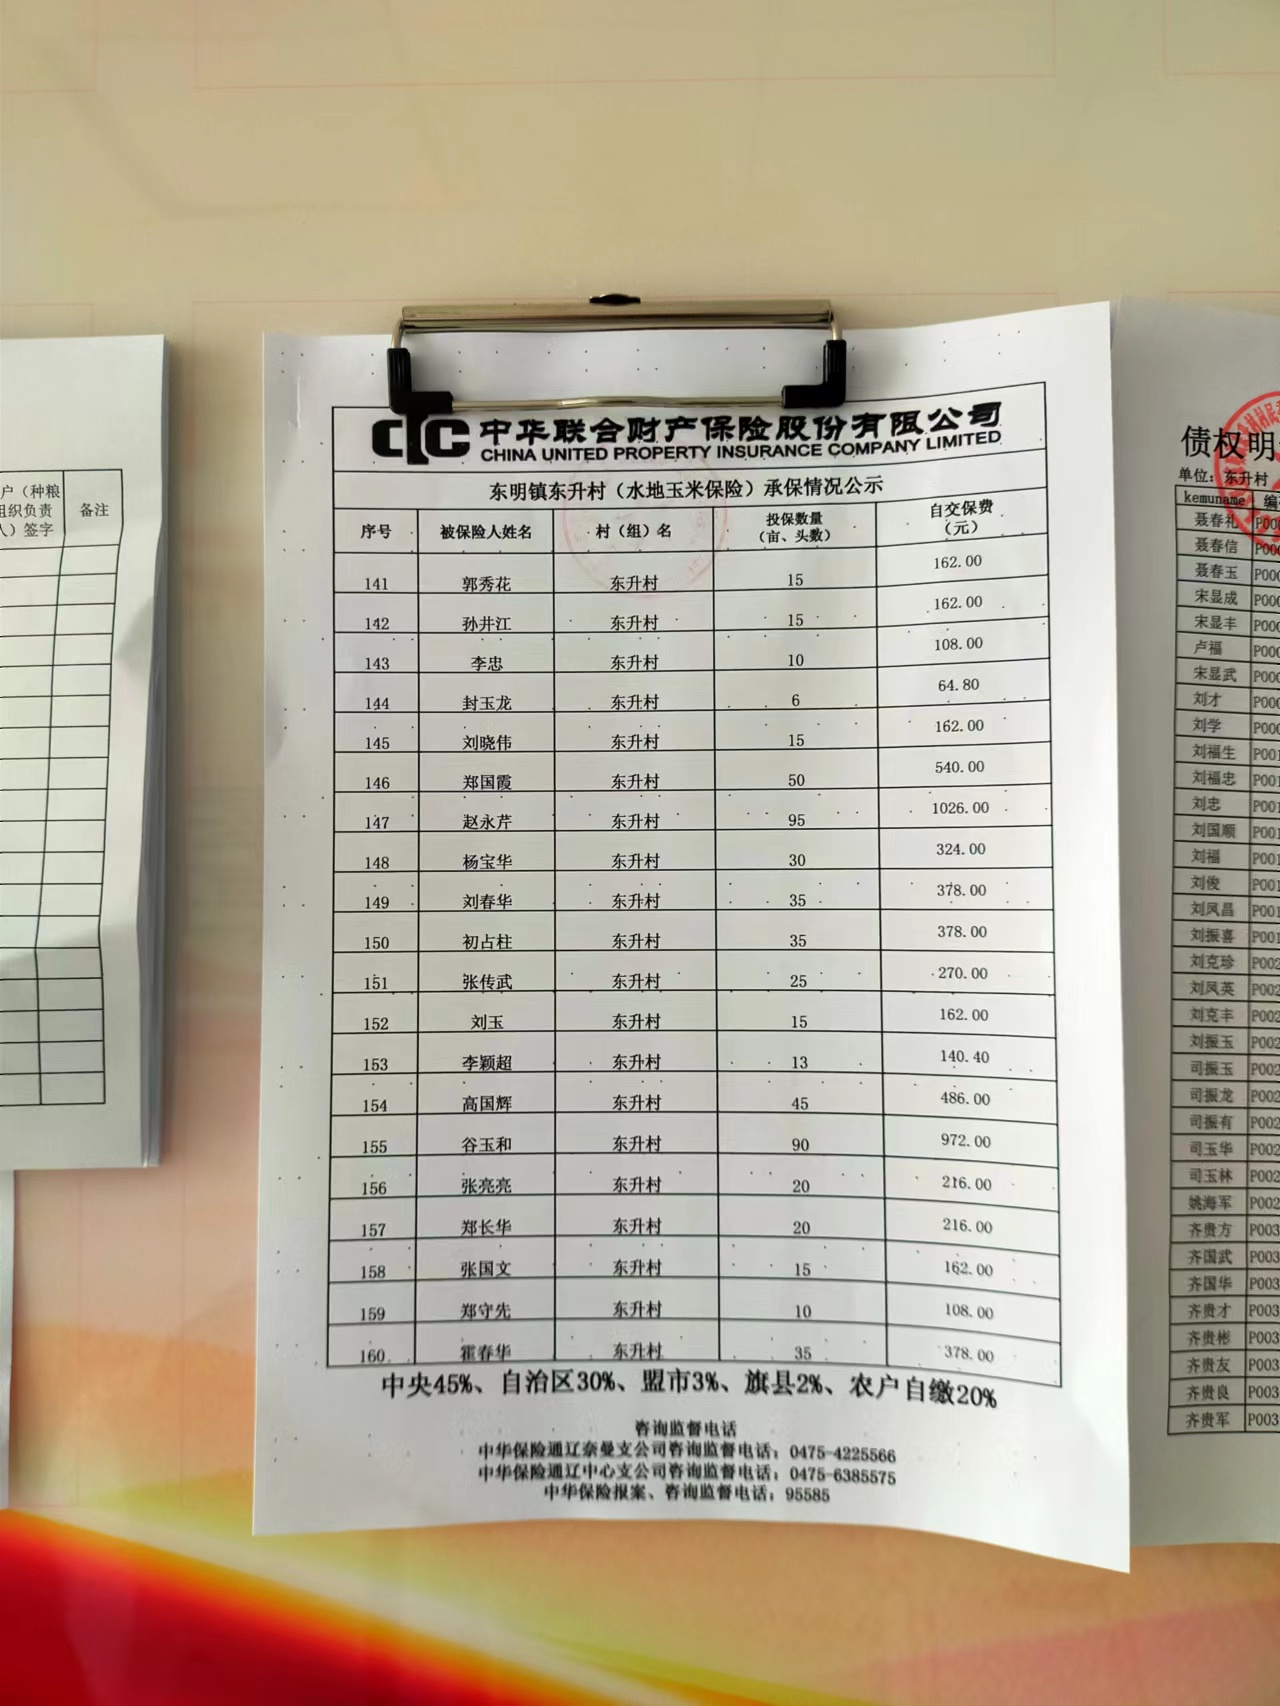 户（种粮
组织负责
人）签字
备注
中华联合财产保险股份有限公司
CHINA UNITED PROPERTY INSURANCE COMPANY LIMITED
东明镇东升村（水地玉米保险）承保情况公示
序号 被保险人姓名 村（组）名 投保数量（亩、头数） 自交保费（元）
141 郭秀花 东升村 15 162.00
142 孙井江 东升村 15 162.00
143 李忠 东升村 10 108.00
144 封玉龙 东升村 6 64.80
145 刘晓伟 东升村 15 162.00
146 郑国霞 东升村 50 540.00
147 赵永芹 东升村 95 1026.00
148 杨宝华 东升村 30 324.00
149 刘春华 东升村 35 378.00
150 初占柱 东升村 35 378.00
151 张传武 东升村 25 270.00
152 刘玉 东升村 15 162.00
153 李颖超 东升村 13 140.40
154 高国辉 东升村 45 486.00
155 谷玉和 东升村 90 972.00
156 张亮亮 东升村 20 216.00
157 郑长华 东升村 20 216.00
158 张国文 东升村 15 162.00
159 郑守先 东升村 10 108.00
160 霍春华 东升村 35 378.00
中央45%、自治区30%、盟市3%、旗县2%、农户自缴20%
咨询监督电话
中华保险通辽奈曼支公司咨询监督电话：0475-4225566
中华保险通辽中心支公司咨询监督电话：0475-6385575
中华保险报案、咨询监督电话：95585
债权明
单位：东升村
kemuname 编
聂春礼 P000
聂春信 P000
聂春玉 P000
宋显成 P000
宋显丰 P000
卢福 P000
宋显武 P000
刘才 P000
刘学 P000
刘福生 P001
刘福忠 P001
刘忠 P001
刘国顺 P001
刘福 P001
刘俊 P001
刘凤昌 P001
刘振喜 P001
刘克珍 P002
刘凤英 P002
刘克丰 P002
刘振玉 P002
司振玉 P002
司振龙 P002
司振有 P002
司玉华 P002
司玉林 P002
姚海军 P002
齐贵方 P003
齐国武 P003
齐国华 P003
齐贵才 P003
齐贵彬 P003
齐贵友 P003
齐贵良 P003
齐贵军 P003